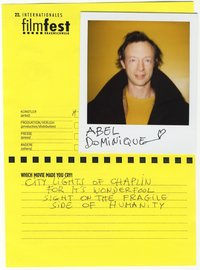 23. INTERNATIONALES
filmfest
BRAUNSCHWEIG
KÜNSTLER
(artist)
PRODUKTION/VERLEIH
(production/distribution)
PRESSE
(press)
ANDERE
(others)
ABEL
DOMINIQUE
WHICH MOVIE MADE YOU CRY?
CITY LIGHTS OF CHAPLIN
FOR IT'S WONDERFOOL
SIGHT ON THE FRAGILE
SIDE OF HUMANITY